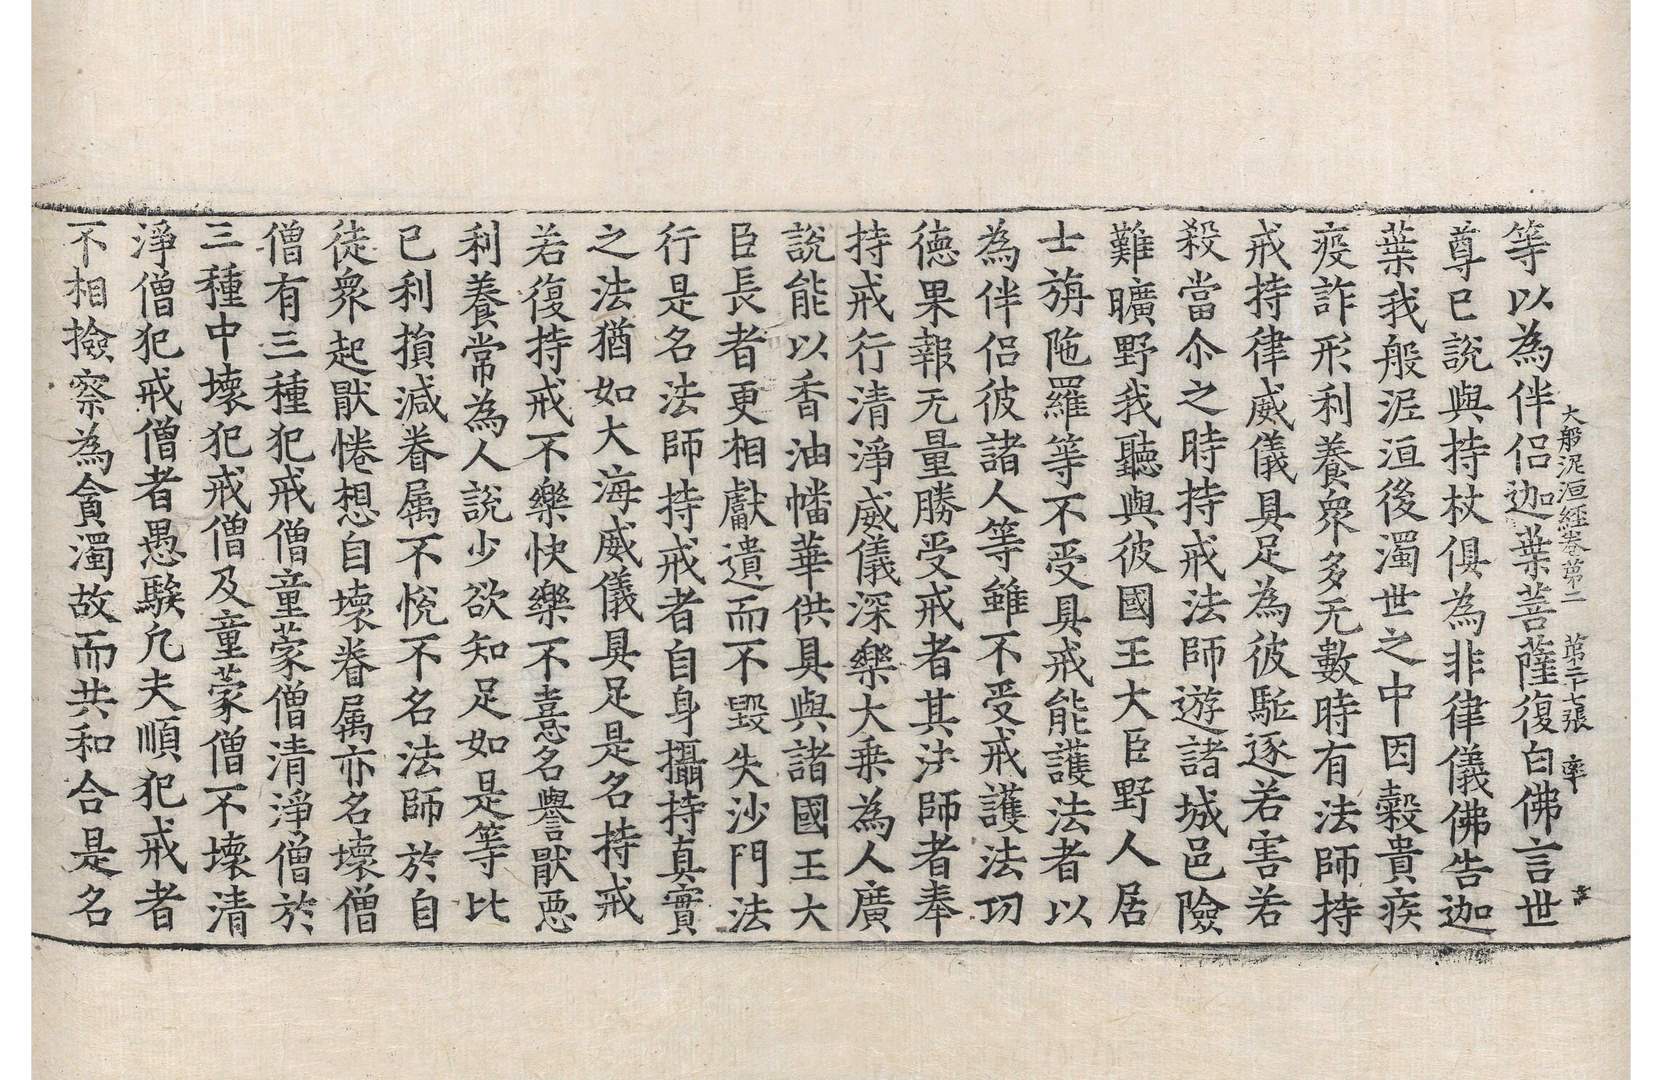 大般泥洹經卷第二 第二十七張 率
等以為伴侣迦葉菩薩復白佛言世
尊已說與持杖俱為非律儀佛告迦
葉我般泥洹後濁世之中因穀貴疾
疫詐形利養衆多无數時有法師持
戒持律威儀具足為彼駈逐若害若
殺當尒之時持戒法師遊諸城邑險
難曠野我聽與彼國王大臣野人居
士旃陁羅等不受具戒能護法者以
為伴侣彼諸人等雖不受戒護法㓛
德果報无量勝受戒者其法師者奉
持戒行清淨威儀深樂大乗為人廣
說能以香油幡華供具與諸國王大
臣長者更相獻遺而不毀失沙門法
行是名法師持戒者自身攝持真實
之法猶如大海威儀具足是名持戒
若復持戒不樂快樂不憙名譽猒惡
利養常為人說少欲知足如是等比
已利損減眷属不悅不名法師於自
徒衆起猒惓想自壞眷属亦名壞僧
僧有三種犯戒僧童蒙僧清淨僧於
三種中壞犯戒僧及童蒙僧不壞清
淨僧犯戒僧者愚騃凢夫順犯戒者
不相撿察為貪濁故而共和合是名